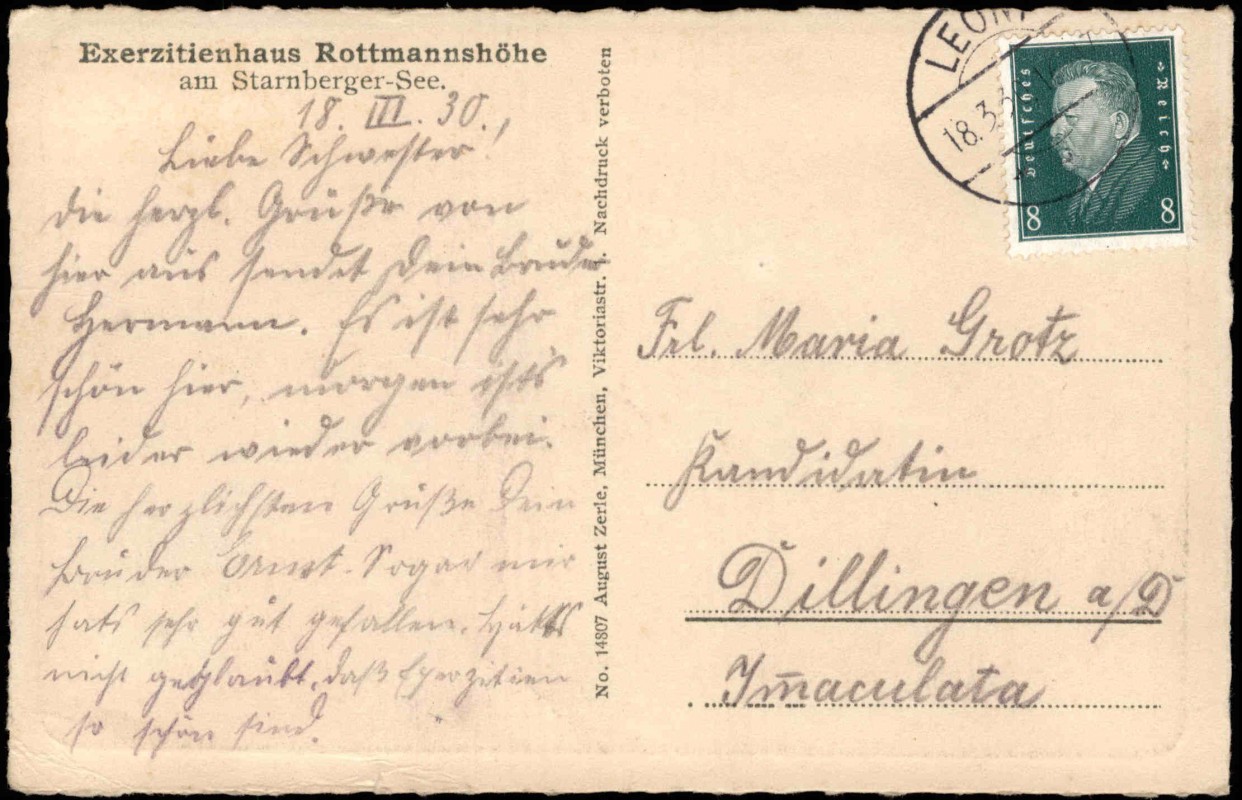 Exerzitienhaus Rottmannshöhe
am Starnberger-See.
18. III. 30.
Liebe Schwester!
die herzl. Grüße von
hier aus sendet Dein Bruder
Hermann. Es ist sehr
schön hier, morgen ists
leider wieder vorbei.
Die herzlichsten Grüße Dein
Bruder Ernst. Sogar mir
hats sehr gut gefallen. Hätts
nicht geglaubt, daß Exerzitien
so schön sind.
No. 14807 August Zerle, München, Viktoriastr. 1. Nachdruck verboten
LEONI
18.3.3
Deutsches
Reich
8 8
Frl. Maria Grotz
Kandidatin
Dillingen a/D
Immaculata